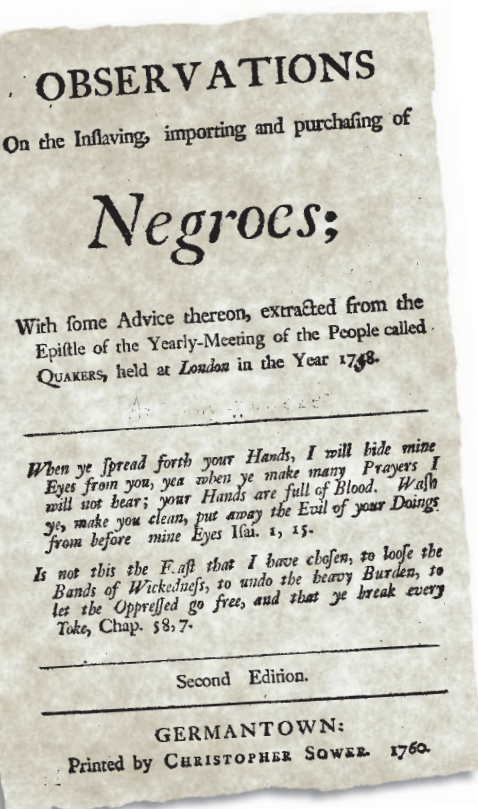 OBSERVATIONS
On the Inſlaving, importing and purchaſing of
Negroes;
With ſome Advice thereon, extracted from the
Epiſtle of the Yearly-Meeting of the People called
QUAKERS, held at London in the Year 1748.
When ye ſpread forth your Hands, I will hide mine
Eyes from you, yea when ye make many Prayers I
will not hear; your Hands are full of Blood. Waſh
ye, make you clean, put away the Evil of your Doings
from before mine Eyes Iſai. 1, 15.
Is not this the Faſt that I have choſen, to looſe the
Bands of Wickedneſs, to undo the heavy Burden, to
let the Oppreſſed go free, and that ye break every
Yoke, Chap. 58, 7.
Second Edition.
GERMANTOWN:
Printed by CHRISTOPHER SOWER. 1760.